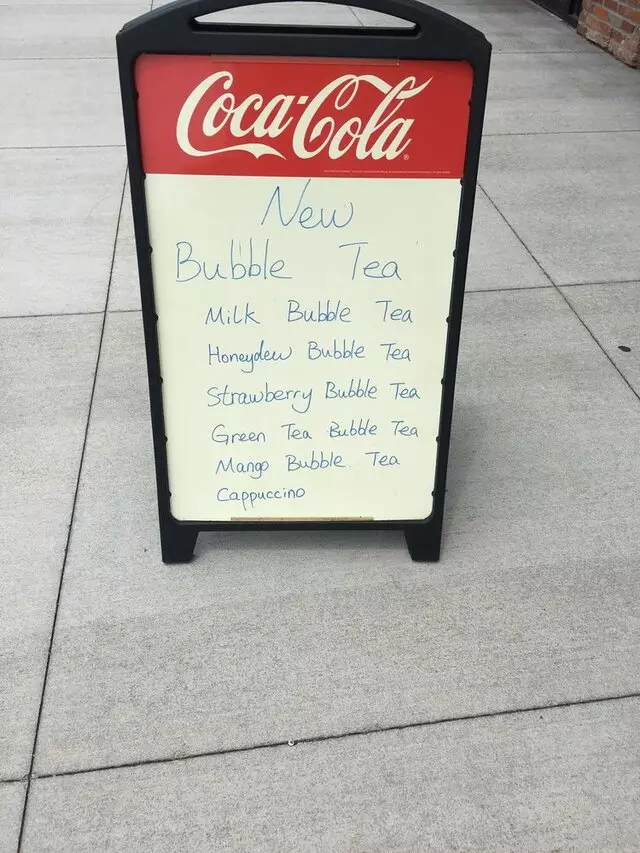 Coca-Cola
New
Bubble Tea
Milk Bubble Tea
Honeydew Bubble Tea
Strawberry Bubble Tea
Green Tea Bubble Tea
Mango Bubble Tea
Cappuccino